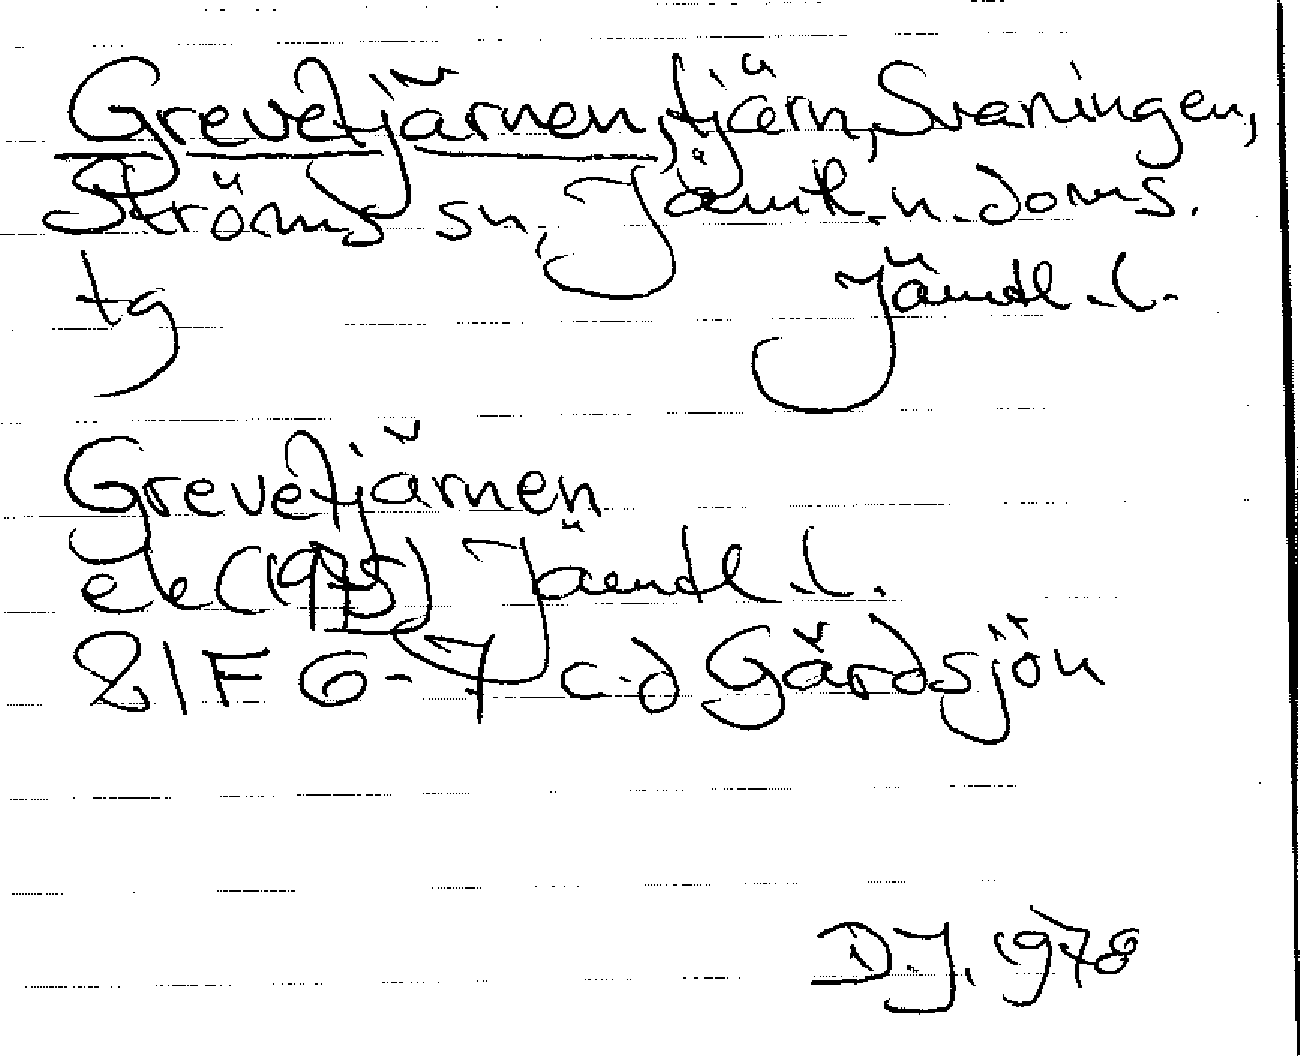 Grevetjärnen, tjärn, Svaningen,
Ströms sn, Jämtl. n. doms.
tg Jämtl. l.
Grevetjärnen
ek (1975) Jämtl. l.
21F 6-7 c-d Gärdsjön
D.J. 1978